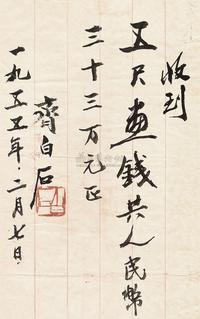 收到
五尺画錢共人民幣
三十三万元正
齊白石
一九五五年.二月七日.